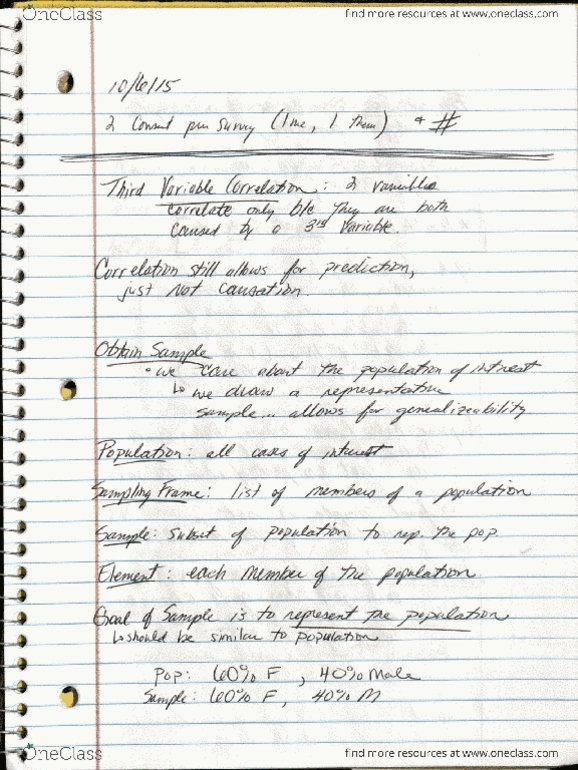 OneClass
find more resources at www.oneclass.com
10/6/15
2 Consent per survey (1 me, 1 them) + #
Third Variable Correlation: 2 variables
correlate only b/c they are both
caused by a 3rd variable.
Correlation still allows for prediction,
just not causation.
Obtain Sample
• we care about the population of interest
↳ we draw a representative
sample... allows for generalizeability
Population: all cases of interest
Sampling Frame: list of members of a population
Sample: subset of population to rep. the pop.
Element: each member of the population.
Goal of Sample is to represent the population
↳ should be similar to population
Pop: 60% F, 40% Male
Sample: 60% F, 40% M
OneClass
find more resources at www.oneclass.com